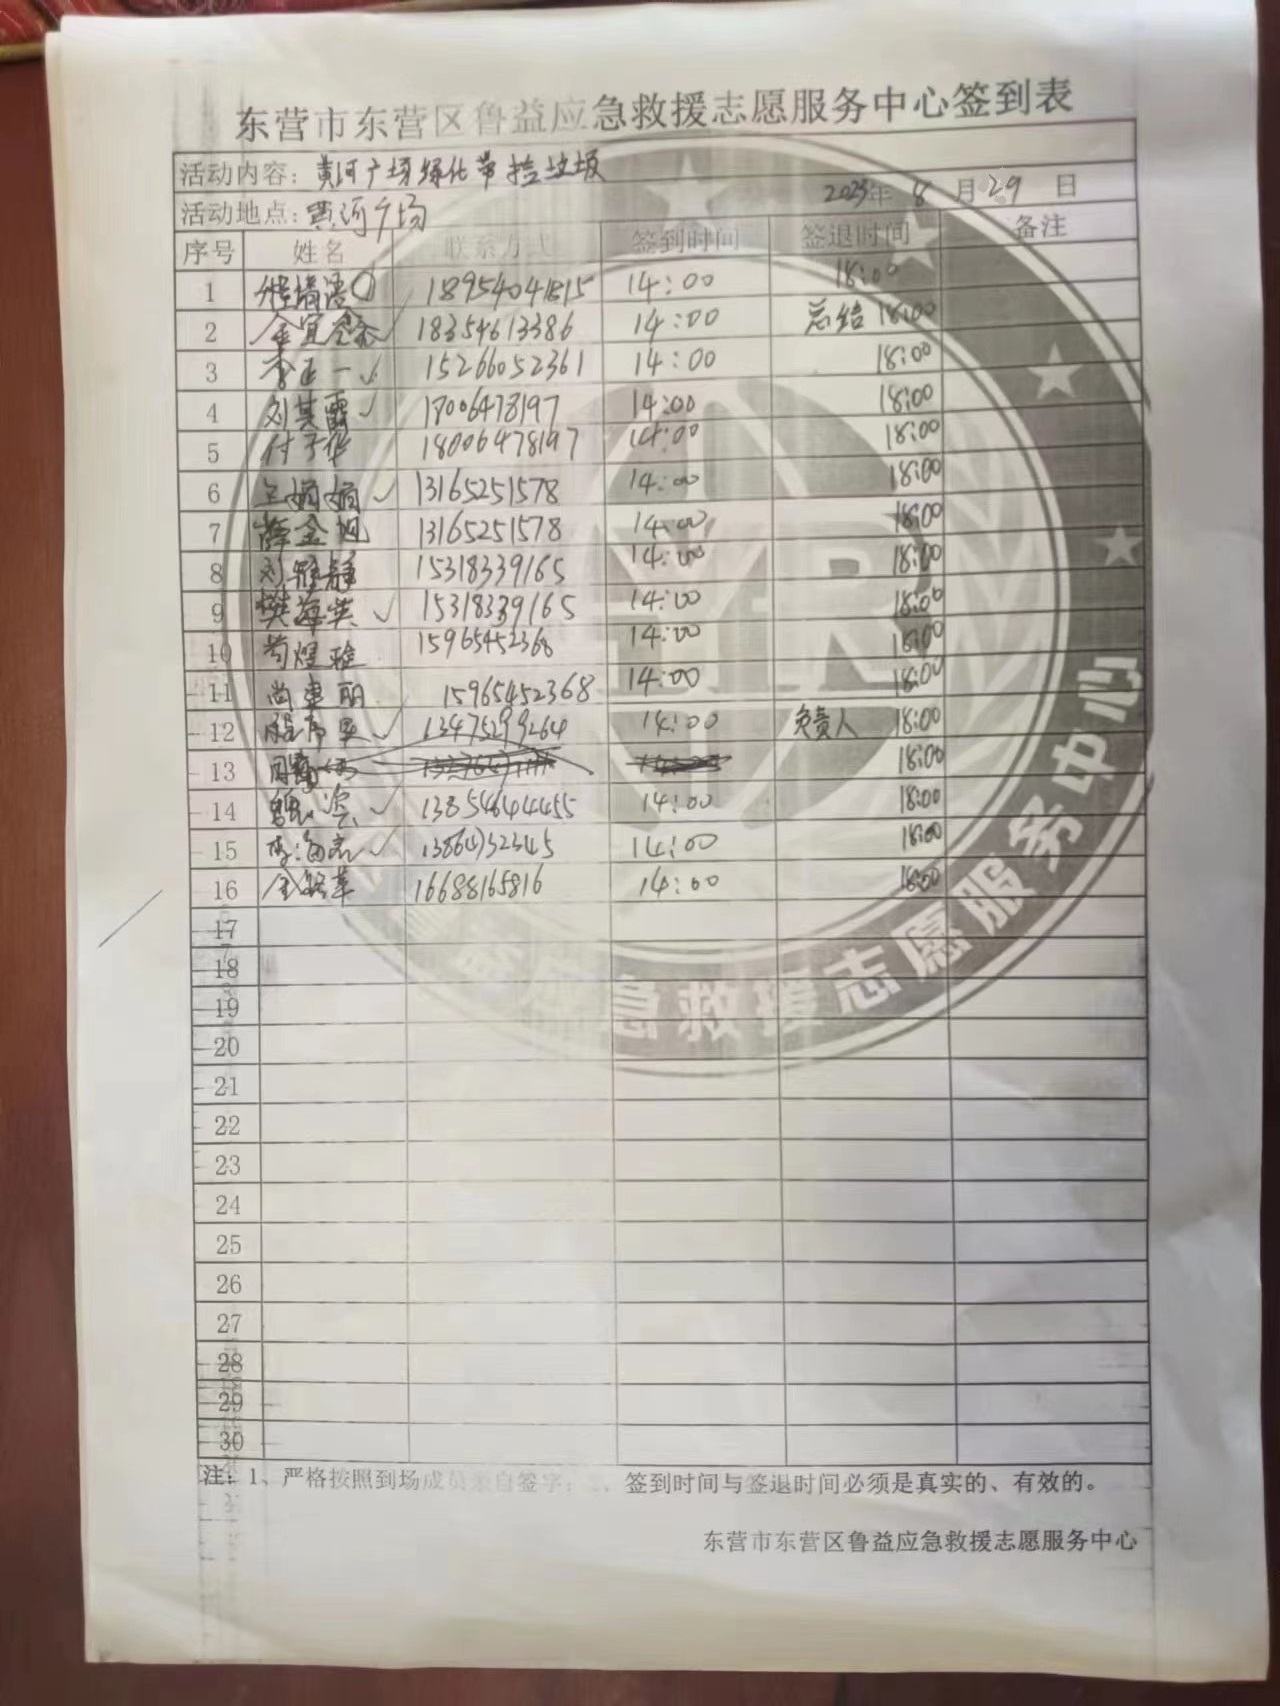 东营市东营区鲁益应急救援志愿服务中心签到表
活动内容：黄河广场绿化带捡垃圾
2025年 8 月 29 日
活动地点：黄河广场
序号 姓名 联系方式 签到时间 签退时间 备注
1 18954041815 14:00 18:00
2 金宜鑫 ✓ 18354613386 14:00 总结 18:00
3 李正一 ✓ 15266052361 14:00 18:00
4 刘其霞 ✓ 18006478197 14:00 18:00
5 付子华 18006478197 14:00 18:00
6 王娟娟 ✓ 13165251578 14:00 18:00
7 薛金旭 13165251578 14:00 18:00
8 刘雅静 15318339165 14:00 18:00
9 樊海英 ✓ 15318339165 14:00 18:00
10 苟煜雅 15965452368 14:00 18:00
11 尚惠丽 15965452368 14:00 18:00
12 ✓ 13475299264 14:00 负责人 18:00
13 18:00
14 ✓ 13854644455 14:00 18:00
15 ✓ 14:00 18:00
16 16688165816 14:00 18:00
17
18
19
20
21
22
23
24
25
26
27
28
29
30
注：1、严格按照到场成员亲自签字；2、签到时间与签退时间必须是真实的、有效的。
东营市东营区鲁益应急救援志愿服务中心
益应急救援志愿服务中心